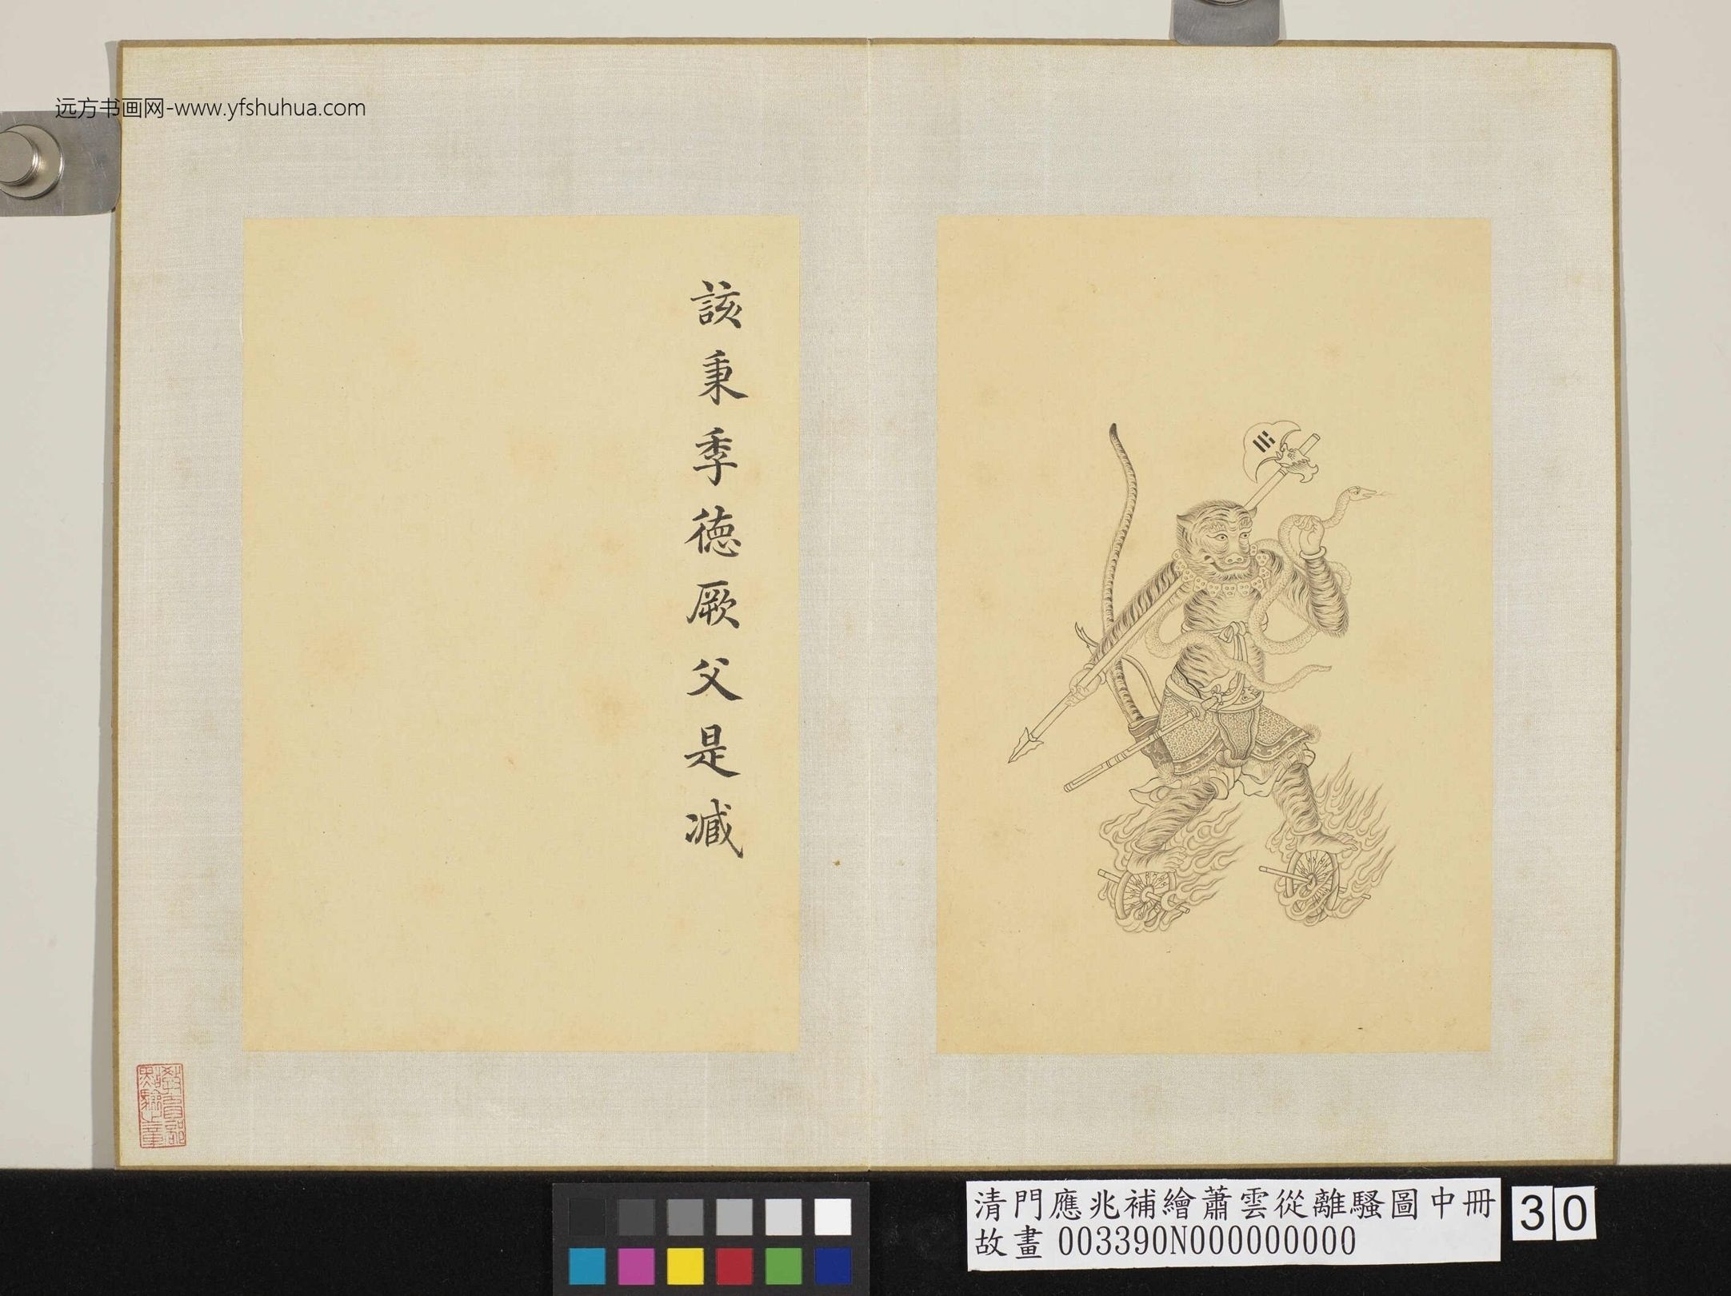 远方书画网-www.yfshuhua.com
該秉季德厥父是臧
清門應兆補繪蕭雲從離騷圖中冊
故畫 003390N000000000
30